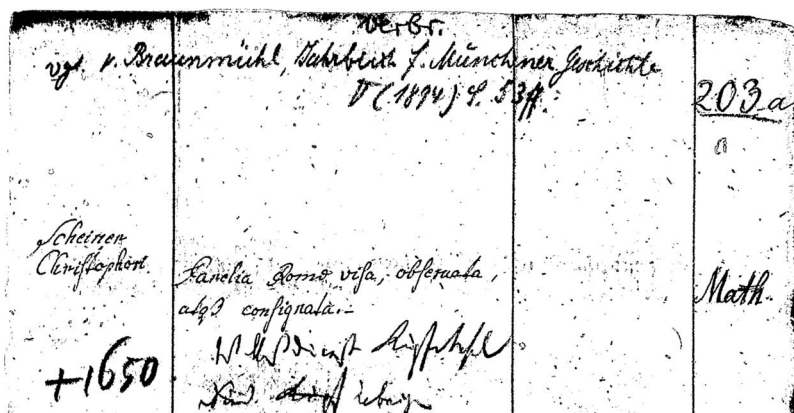 verbr.
vgl. v. Braunmühl, Jahrbuch f. Münchner Geschichte
V (1894) S. 53ff.
203a
Scheiner
Christophori
Parelia Romæ visa, observata,
atq3 consignata.
Math.
+1650